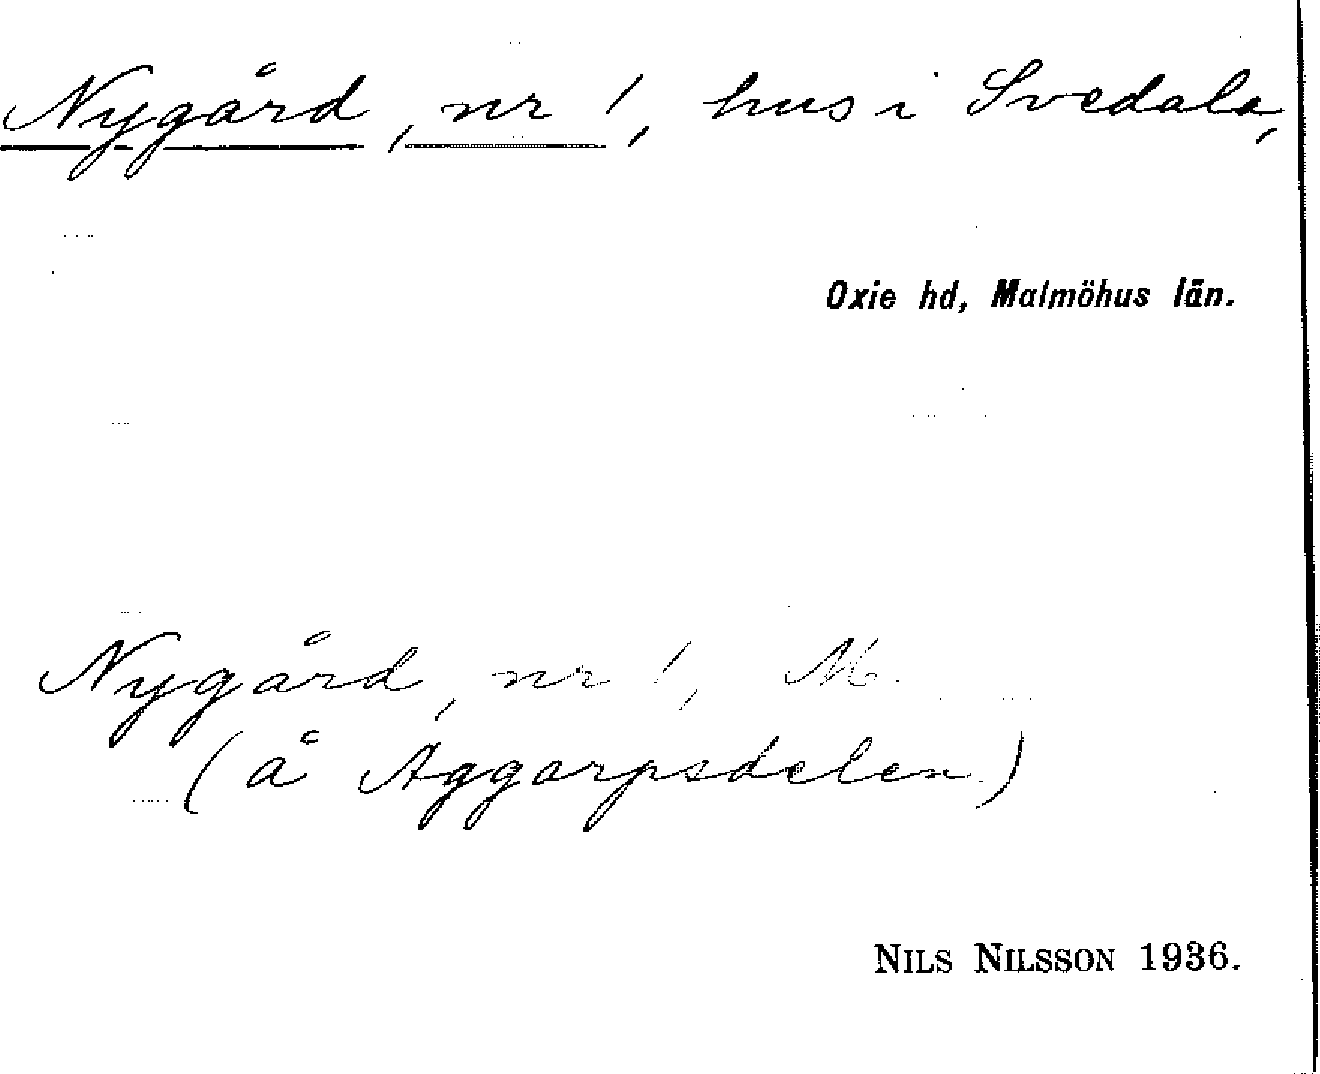 Nygård, nr 1, hus i Svedala,
Oxie hd, Malmöhus län.
Nygård, nr 1, M.
(å Aggarpsdelen)
NILS NILSSON 1936.